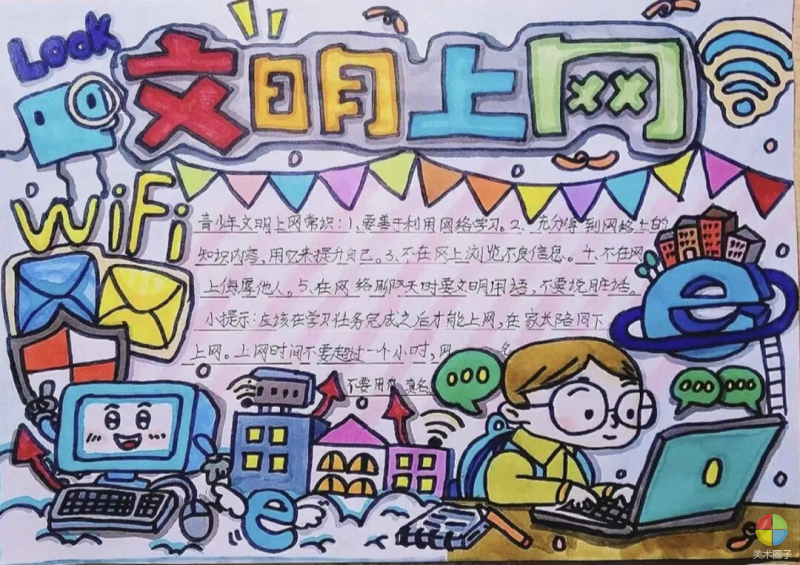 Look
文明上网
WiFi
青少年文明上网常识:1、要善于利用网络学习。2、充分得到网络上的
知识内容,用它来提升自己。3、不在网上浏览不良信息。4、不在网
上侮辱他人。5、在网络聊天时要文明用语,不要说脏话。
小提示:应该在学习任务完成之后才能上网,在家长陪同下
上网。上网时间不要超过一个小时,网 名
不要用
e
e
美术圈子